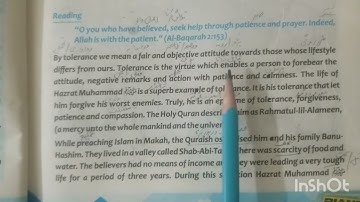 Reading
"O you who have believed, seek help through patience and prayer. Indeed,
Allah is with the patient." (Al-Baqarah 2:153)
By tolerance we mean a fair and objective attitude towards those whose lifestyle
differs from ours. Tolerance is the virtue which enables a person to forbear the
attitude, negative remarks and action with patience and calmness. The life of
Hazrat Muhammad ﷺ is a superb example of tolerance. It is his tolerance that let
him forgive his worst enemies. Truly, he is an of tolerance, forgiveness,
patience and compassion. The Holy Quran describes him as Rahmatul-lil-Alameen,
(a mercy upto the whole mankind and the universe
While preaching Islam in Makah, the Quraish him and his family Banu-
Hashim. They lived in a valley called Shab-Abi-Ta There was scarcity of food and
water. The believers had no means of income and they were leading a very tough
life for a period of three years. During this Hazrat Muhammad ﷺ
InShot